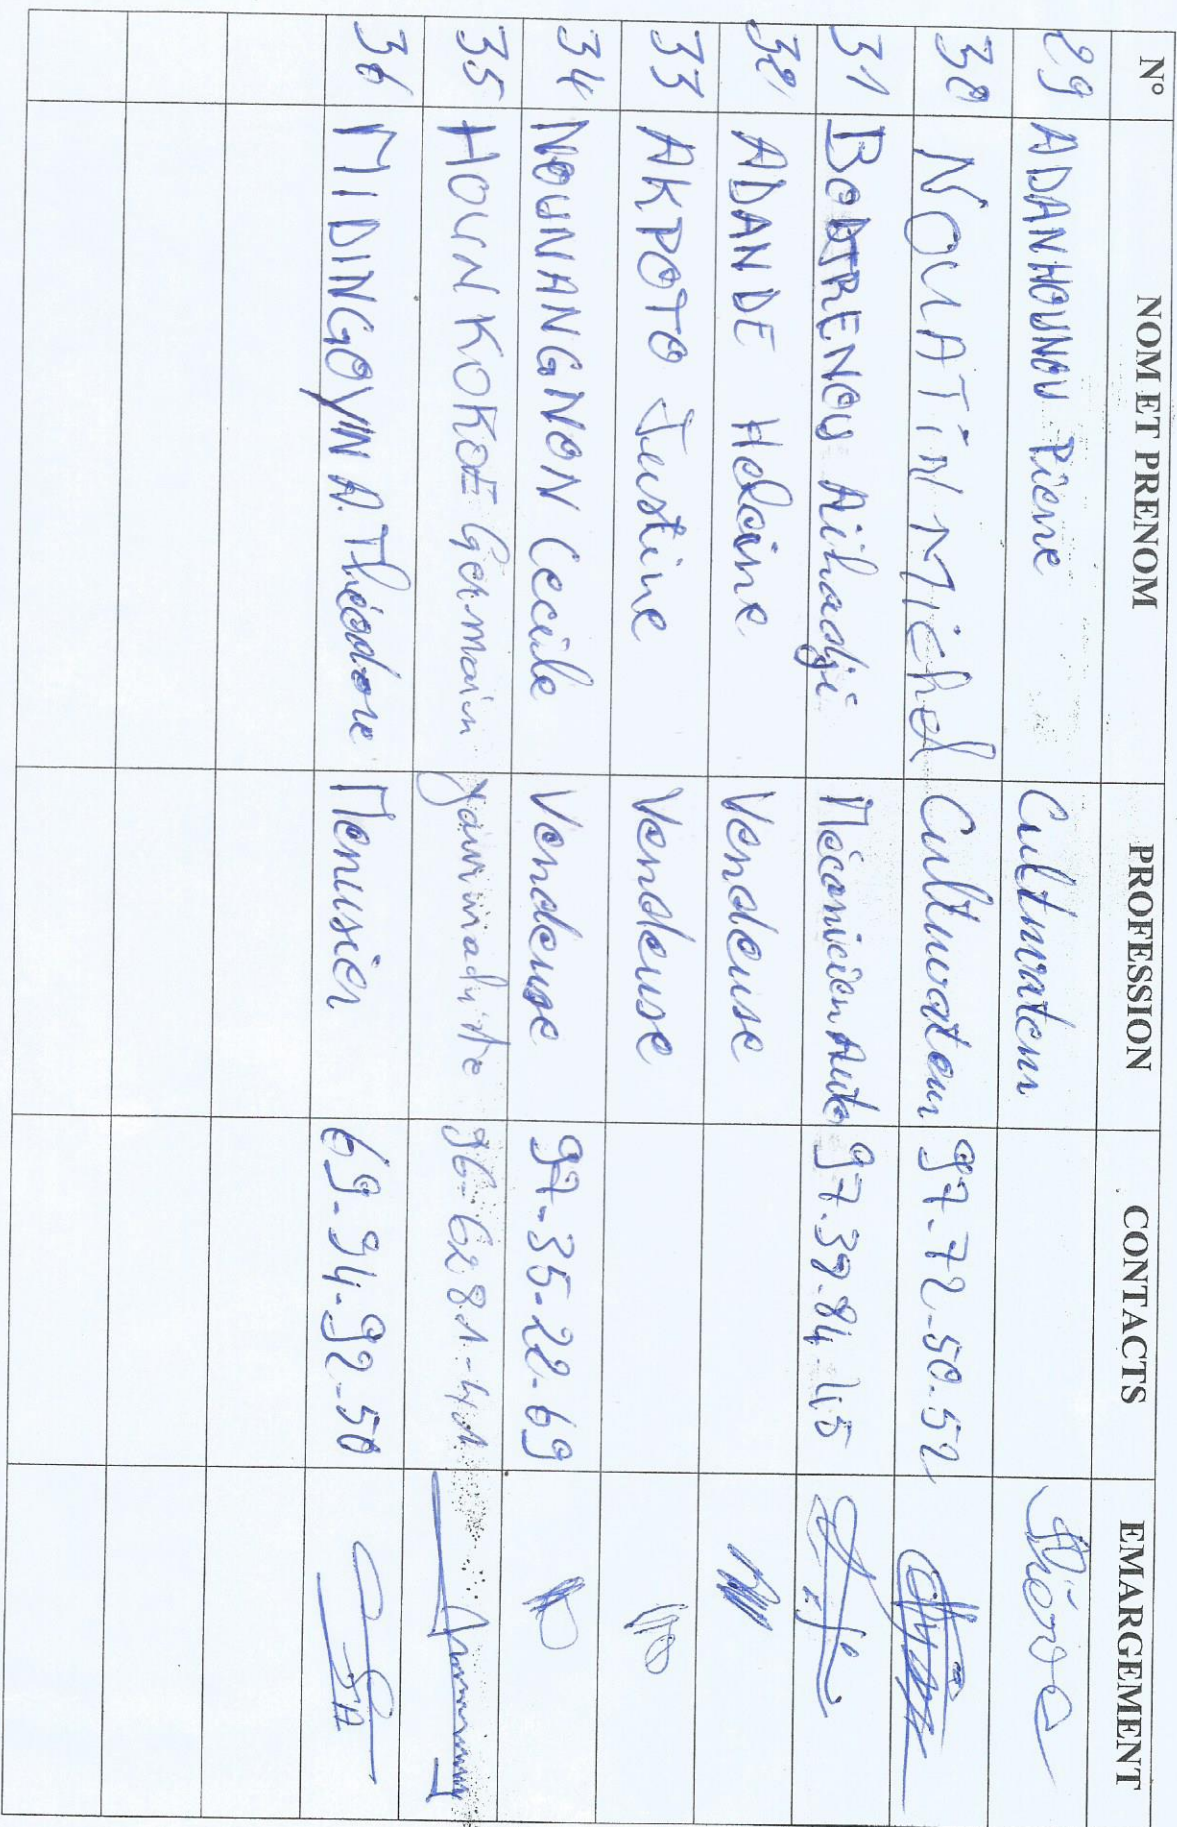 N° NOM ET PRENOM PROFESSION CONTACTS EMARGEMENT
29 ADANHOUNOU Pierre Cultivateur
30 NOUATIN Michel Cultivateur 97-72-50-52
31 Aïhadji Mécanicien Auto 97.39-84-45
32 ADANDE Helène Vendeuse
33 AKPOTO Justine Vendeuse
34 NOUNANGNON Cecile Vendeuse 97-35-22-69
35 HOUNKOKOE Germain 96-62-81-41
36 MIDINGOYIN A. Théodore Menusier 69-94-92-50